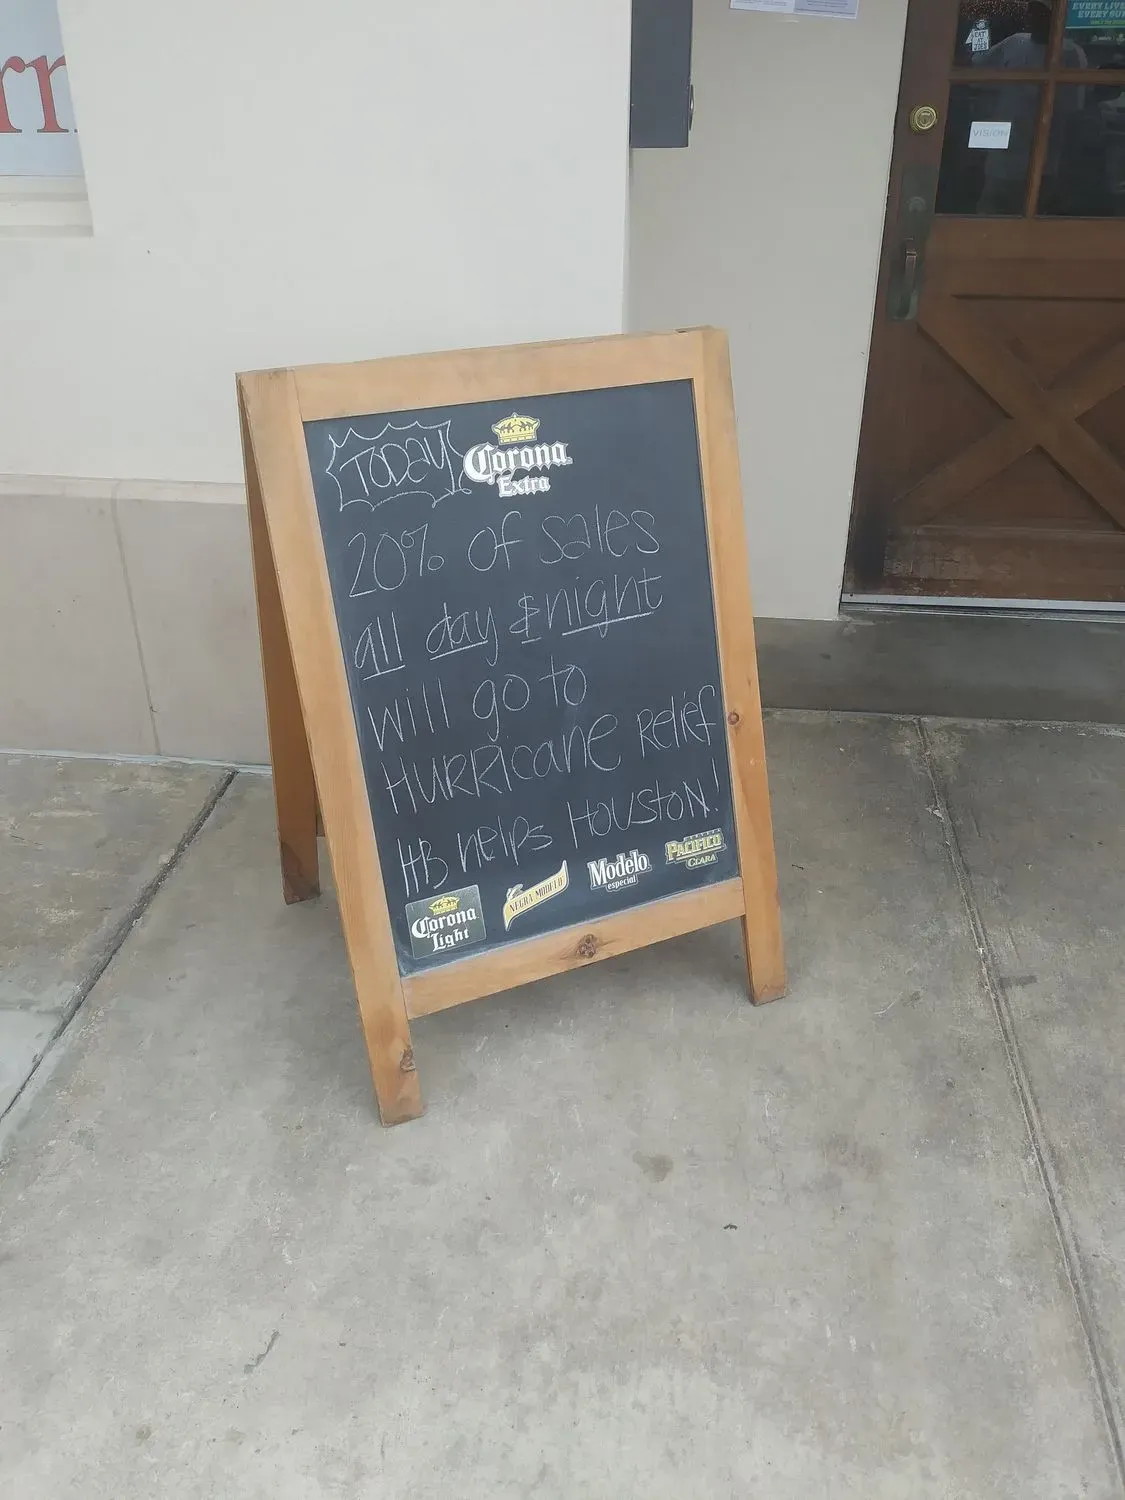 rn
EVERY
EVERY
VISION
TODAY
Corona
Extra
20% of sales
all day & night
will go to
HURRICANE RELIEF
HB helps HOUSTON!
Corona
Light
NEGRA MODELO
Modelo
especial
CERVEZA
PACIFICO
CLARA